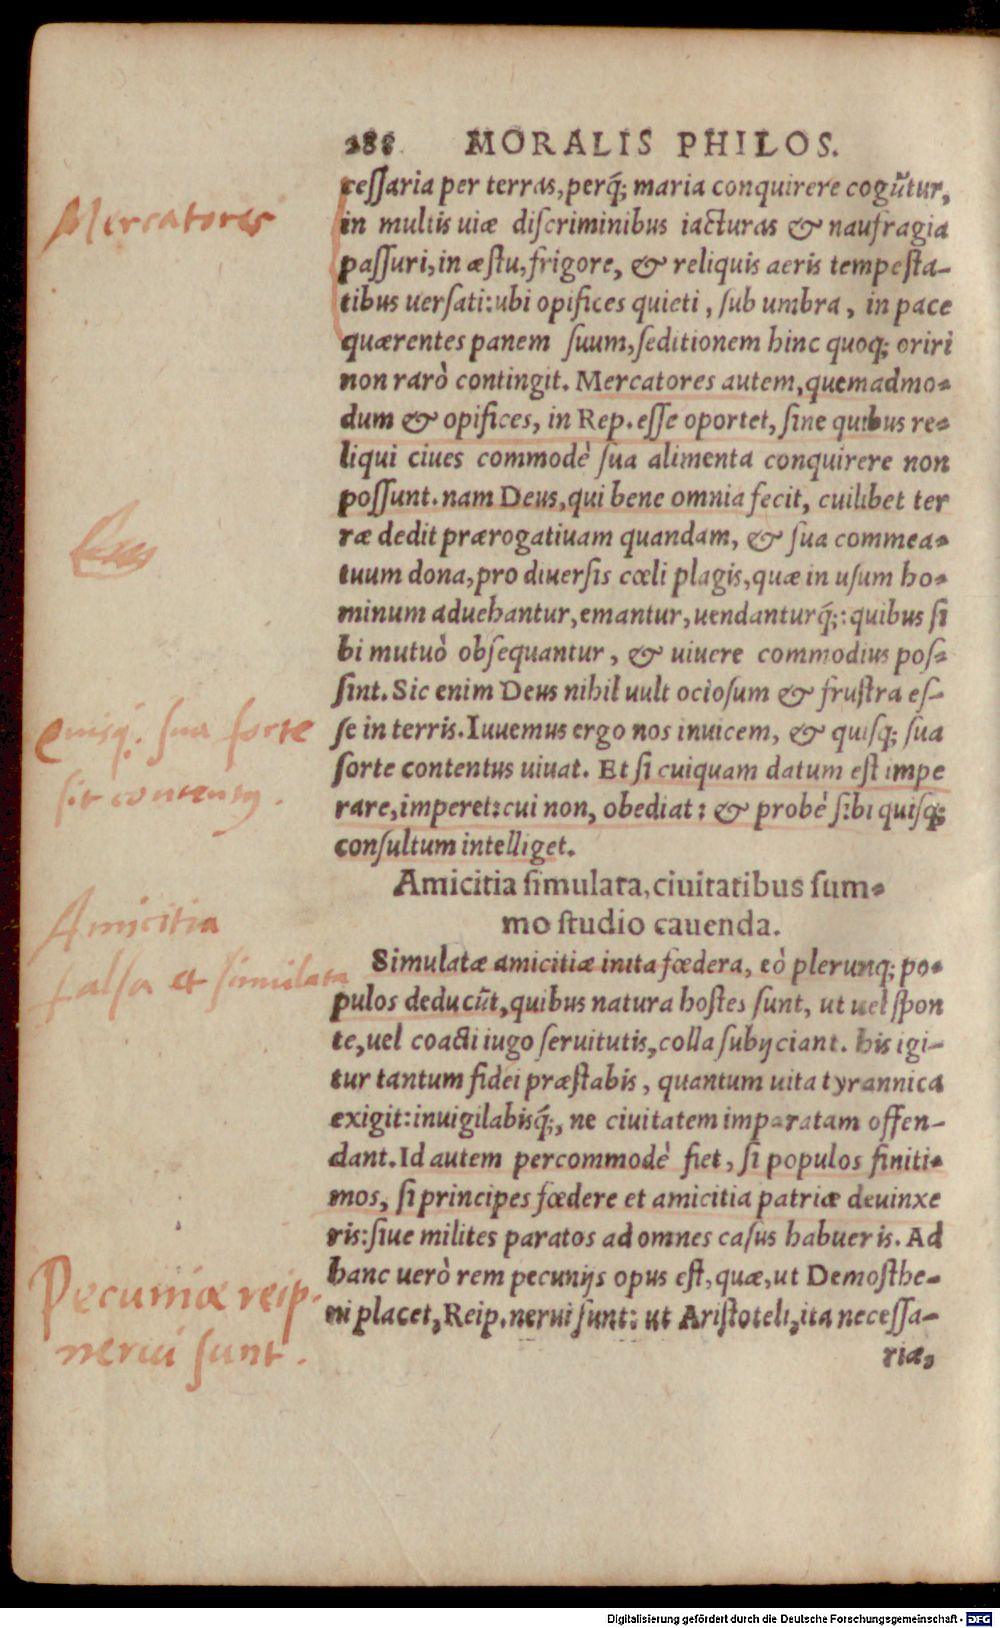 288 MORALIS PHILOS.
ceſſaria per terras, perq́; maria conquirere cogūtur,
in multis uiæ diſcriminibus iacturas & naufragia
paſſuri, in æſtu, frigore, & reliquis aeris tempeſta-
tibus uerſati: ubi opifices quieti, ſub umbra, in pace
quærentes panem ſuum, ſeditionem hinc quoq; oriri
non rarò contingit. Mercatores autem, quemadmo-
dum & opifices, in Rep. eſſe oportet, ſine quibus re-
liqui ciues commodè ſua alimenta conquirere non
poſſunt. nam Deus, qui bene omnia fecit, cuilibet ter
ræ dedit prærogatiuam quandam, & ſua commea-
tuum dona, pro diuerſis cœli plagis, quæ in uſum ho-
minum aduehantur, emantur, uendanturq́;: quibus ſi
bi mutuò obſequantur, & uiuere commodius poſ-
ſint. Sic enim Deus nihil uult ocioſum & fruſtra eſ-
ſe in terris. Iuuemus ergo nos inuicem, & quiſq; ſua
ſorte contentus uiuat. Et ſi cuiquam datum eſt impe
rare, imperet: cui non, obediat: & probè ſibi quiſq;
conſultum intelliget.
Amicitia ſimulata, ciuitatibus ſum-
mo ſtudio cauenda.
Simulatæ amicitiæ inita fœdera, eò plerunq; po-
pulos deducūt, quibus natura hoſtes ſunt, ut uel ſpon
te, uel coacti iugo ſeruitutis, colla ſubijciant. his igi-
tur tantum fidei præſtabis, quantum uita tyrannica
exigit: inuigilabisq́;, ne ciuitatem imparatam offen-
dant. Id autem percommodè fiet, ſi populos finiti-
mos, ſi principes fœdere et amicitia patriæ deuinxe
ris: ſiue milites paratos ad omnes caſus habueris. Ad
hanc uerò rem pecunijs opus eſt, quæ, ut Demoſthe-
ni placet, Reip. nerui ſunt: ut Ariſtoteli, ita neceſſa-
riæ,
Mercatores
Quisq; sua sorte
sit contentus.
Amicitia
falsa et simulata
Pecuniæ reip.
nerui sunt.
Digitalisierung gefördert durch die Deutsche Forschungsgemeinschaft - DFG